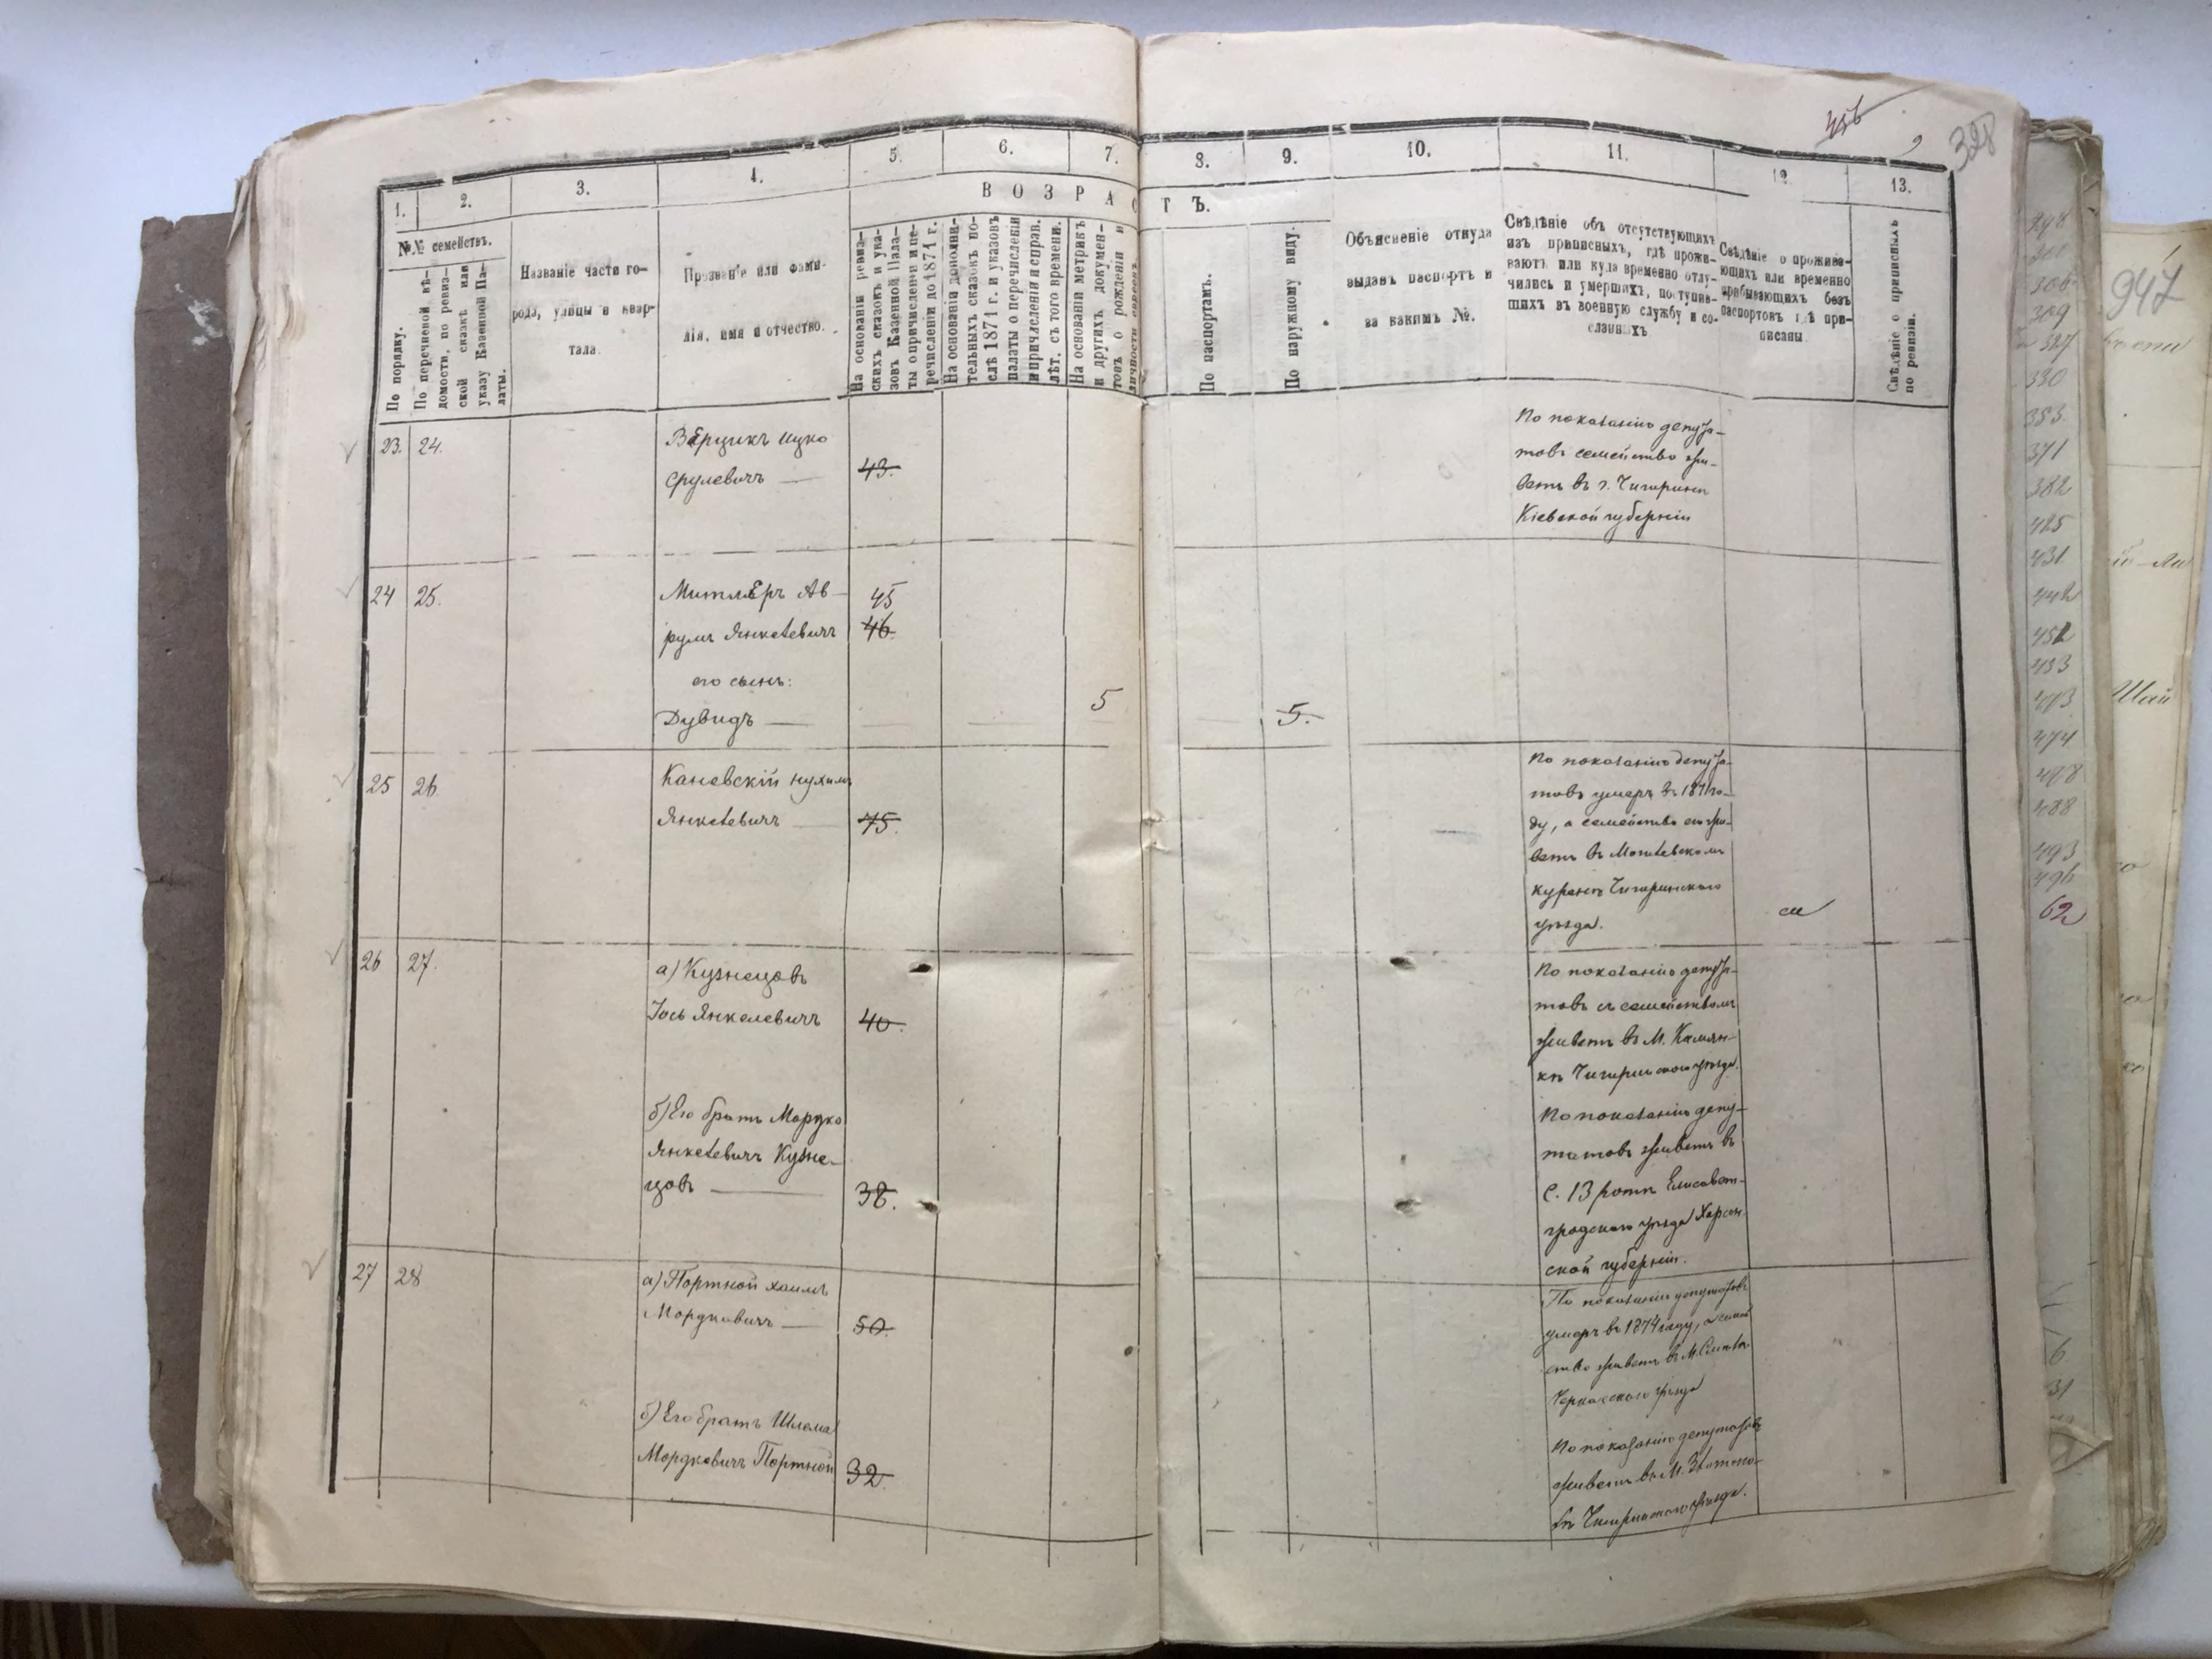 456
328
1.
2.
3.
4.
5.
6.
7.
8.
9.
10.
11.
12.
13.
ВОЗРАСТЪ.
№№ семействъ.
По порядку.
По перечневой вѣ-
домости, по ревиз-
ской сказкѣ или
указу Казенной Па-
латы.
Названіе части го-
рода, улицы и квар-
тала.
Прозваніе или фами-
лія, имя и отчество.
На основаніи ревиз-
скихъ сказокъ и ука-
зовъ Казенной Пала-
ты о причисленіи и пе-
речисленіи до 1871 г.
На основаніи дополни-
тельныхъ сказокъ по-
слѣ 1871 г. и указовъ
палаты о перечисленіи
и причисленіи и справ.
лѣт. съ того времени.
На основаніи метрикъ
и другихъ докумен-
товъ о рожденіи и
личности евреевъ.
По паспортамъ.
По наружному виду.
Объясненіе откуда
выданъ паспортъ и
за какимъ №.
Свѣдѣніе объ отсутствующихъ
изъ приписныхъ, гдѣ прожи-
ваютъ или куда временно отлу-
чились и умершихъ, поступив-
шихъ въ военную службу и со-
сланныхъ
Свѣдѣніе о прожива-
ющихъ или временно
прибывающихъ безъ
паспортовъ гдѣ при-
писаны
Свѣдѣніе о приписныхъ
по ревизіи.
23. 24.
Верцикъ Ицко
Срулевичъ — 43.
По показанію депута-
товъ семейство жи-
ветъ въ г. Чигиринѣ
Кіевской губерніи
24 25.
Митлеръ Ав- 45
румъ Янкелевичъ 46.
его сынъ:
Дувидъ — 5 5.
25 26
Каневскій Нухимъ
Янкелевичъ — 75.
По показанію депута-
товъ умеръ въ 1871 го-
ду, а семейство его жи-
ветъ въ
Чигиринскаго
уѣзда.
26 27.
а) Кузнецовъ
Іось Янкелевичъ 40.
По показанію депута-
товъ съ семействомъ
живетъ въ М. Камян-
кѣ Чигиринскаго уѣзда.
б) Его братъ Мордко
Янкелевичъ Кузне-
цовъ — 38.
По показанію депу-
татовъ живетъ въ
С. 13 ротѣ Елисавет-
градскаго уѣзда Херсон-
ской губерніи.
27 28
а) Портной Хаимъ
Мордковичъ — 50.
По показанію депутатовъ
умеръ въ 1874 году, а семей
ство живетъ въ М.
Черкасскаго уѣзда
б) Его братъ Шлема
Мордковичъ Портной 32.
По показанію депутатовъ
живетъ въ М. Златопо-
лѣ Чигиринскаго уѣзда.
298
309
330
353
371
382
425
431
442
452
453
474
488
493
496
62
947